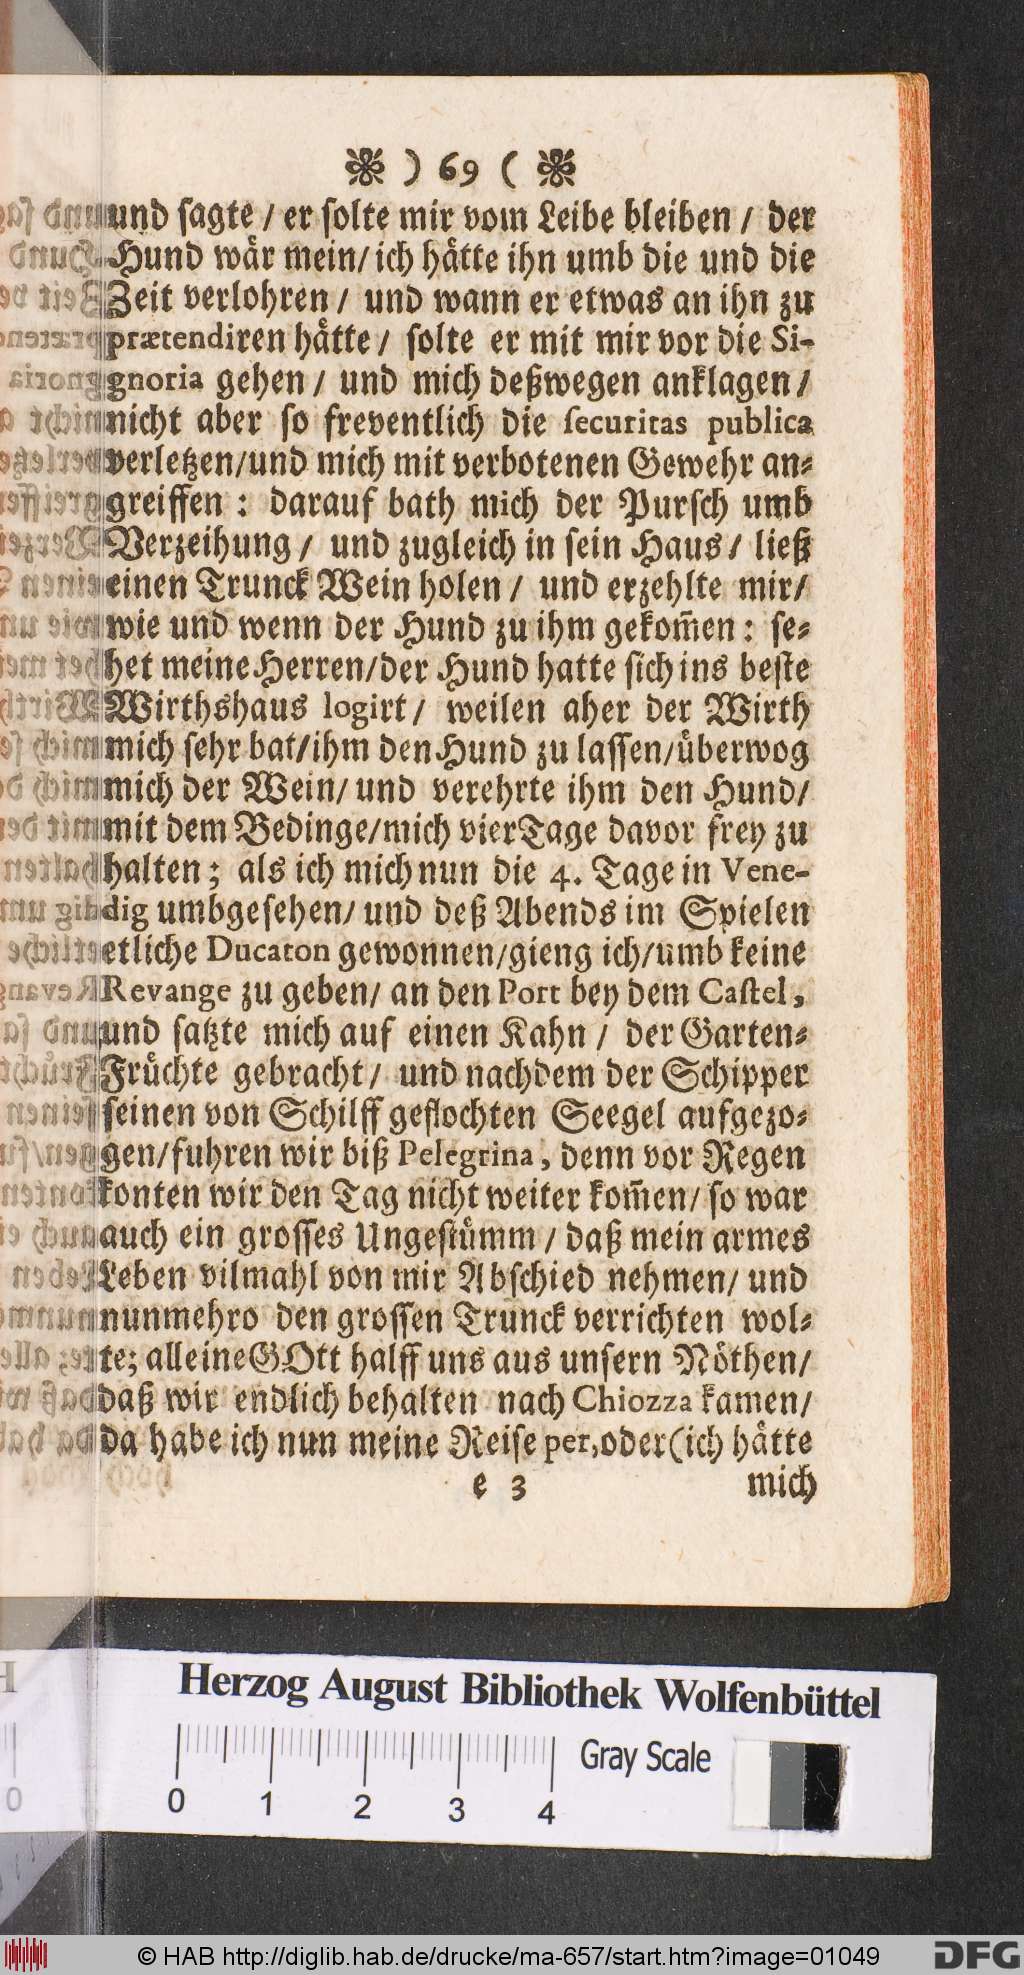 ❀ ) 69 ( ❀
und sagte / er solte mir vom Leibe bleiben / der
Hund wär mein/ ich hätte ihn umb die und die
Zeit verlohren / und wann er etwas an ihn zu
prætendiren hätte / solte er mit mir vor die Si-
gnoria gehen / und mich deßwegen anklagen /
nicht aber so freventlich die securitas publica
verletzen/und mich mit verbotenen Gewehr an-
greiffen : darauf bath mich der Pursch umb
Verzeihung / und zugleich in sein Haus / ließ
einen Trunck Wein holen / und erzehlte mir/
wie und wenn der Hund zu ihm gekom̃en : se-
het meine Herren/der Hund hatte sich ins beste
Wirthshaus logirt / weilen aher der Wirth
mich sehr bat/ihm den Hund zu lassen/überwog
mich der Wein/ und verehrte ihm den Hund/
mit dem Bedinge/mich vier Tage davor frey zu
halten ; als ich mich nun die 4. Tage in Vene-
dig umbgesehen/ und deß Abends im Spielen
etliche Ducaton gewonnen/gieng ich/umb keine
Revange zu geben/ an den Port bey dem Castel,
und satzte mich auf einen Kahn / der Garten-
Früchte gebracht / und nachdem der Schipper
seinen von Schilff geflochten Seegel aufgezo-
gen/fuhren wir biß Pelegrina, denn vor Regen
konten wir den Tag nicht weiter kom̃en/ so war
auch ein grosses Ungestümm / daß mein armes
Leben vilmahl von mir Abschied nehmen/ und
nunmehro den grossen Trunck verrichten wol-
te; alleine GOtt halff uns aus unsern Nöthen/
daß wir endlich behalten nach Chiozza kamen/
da habe ich nun meine Reise per, oder (ich hätte
e 3 mich
Herzog August Bibliothek Wolfenbüttel
0 1 2 3 4 Gray Scale
© HAB http://diglib.hab.de/drucke/ma-657/start.htm?image=01049
DFG